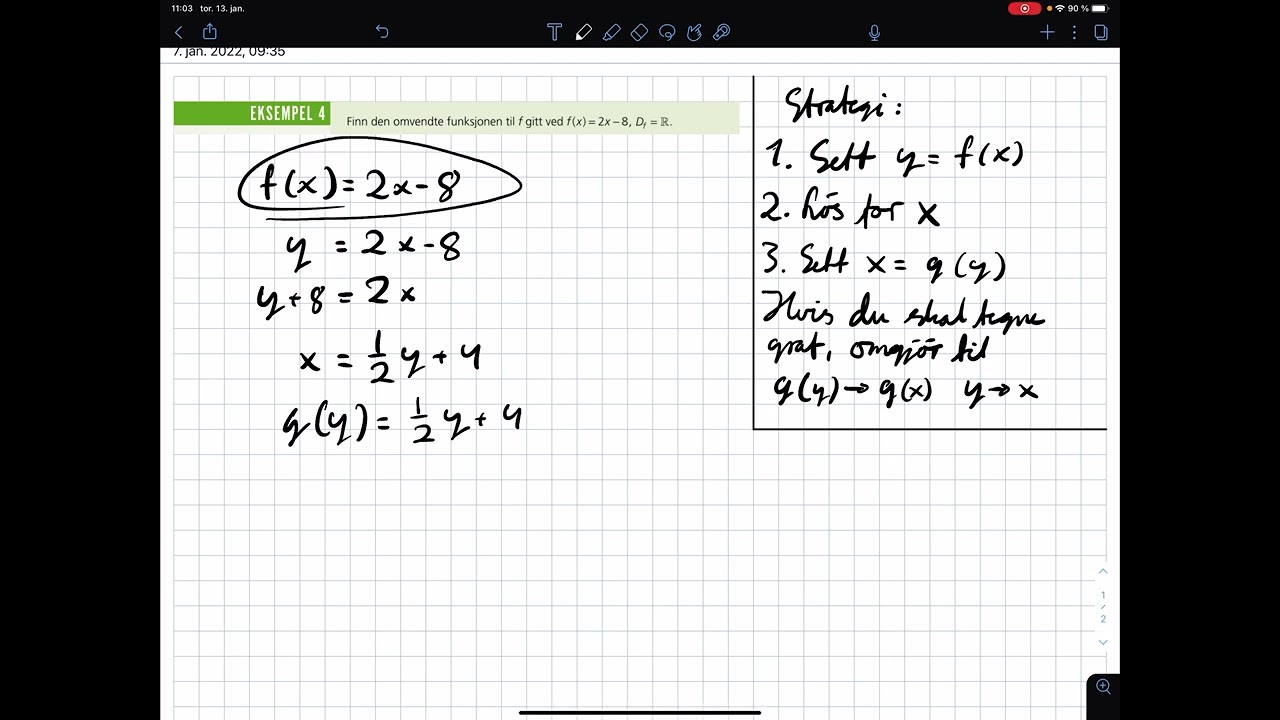 11:03 tor. 13. jan.
90 %
7. jan. 2022, 09:35
EKSEMPEL 4
Finn den omvendte funksjonen til f gitt ved f(x) = 2x − 8, D_f = ℝ.
f(x) = 2x - 8
y = 2x - 8
y + 8 = 2x
x = 1/2 y + 4
g(y) = 1/2 y + 4
Strategi:
1. Sett y = f(x)
2. Løs for x
3. Sett x = g(y)
Hvis du skal tegne
graf, omgjør til
g(y) → g(x) y → x
1
/
2